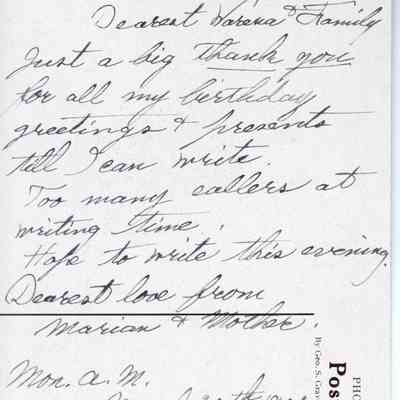 Dearest Varena & Family
Just a big thank you
for all my birthday
greetings & presents
till I can write.
Too many callers at
writing time.
Hope to write this evening.
Dearest love from
Marian & Mother.
Mon. a.m.
PHO
Pos
By Geo. S. Grav